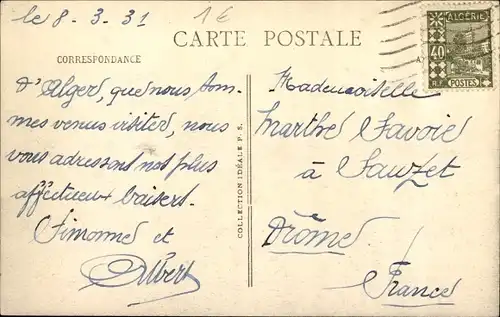 le 8-3-31
1€
CARTE POSTALE
CORRESPONDANCE
ALGERIE
40
POSTES
d'Alger, que nous som-
mes venus visiter, nous
vous adressons nos plus
affectueux baisers.
Simonne et
Albert
COLLECTION IDÉALE P. S.
Mademoiselle
Marthe Savoie
à Sauzet
Drôme
France